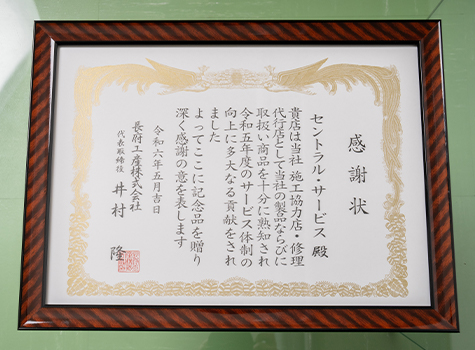 感謝状
セントラル・サービス 殿
貴店は当社 施工協力店・修理
代行店として当社の製品ならびに
取扱い商品を十分に熟知され
令和五年度のサービス体制の
向上に多大なる貢献をされ
ました
よってここに記念品を贈り
深く感謝の意を表します
令和六年五月吉日
長府工産株式会社
代表取締役 井村 隆